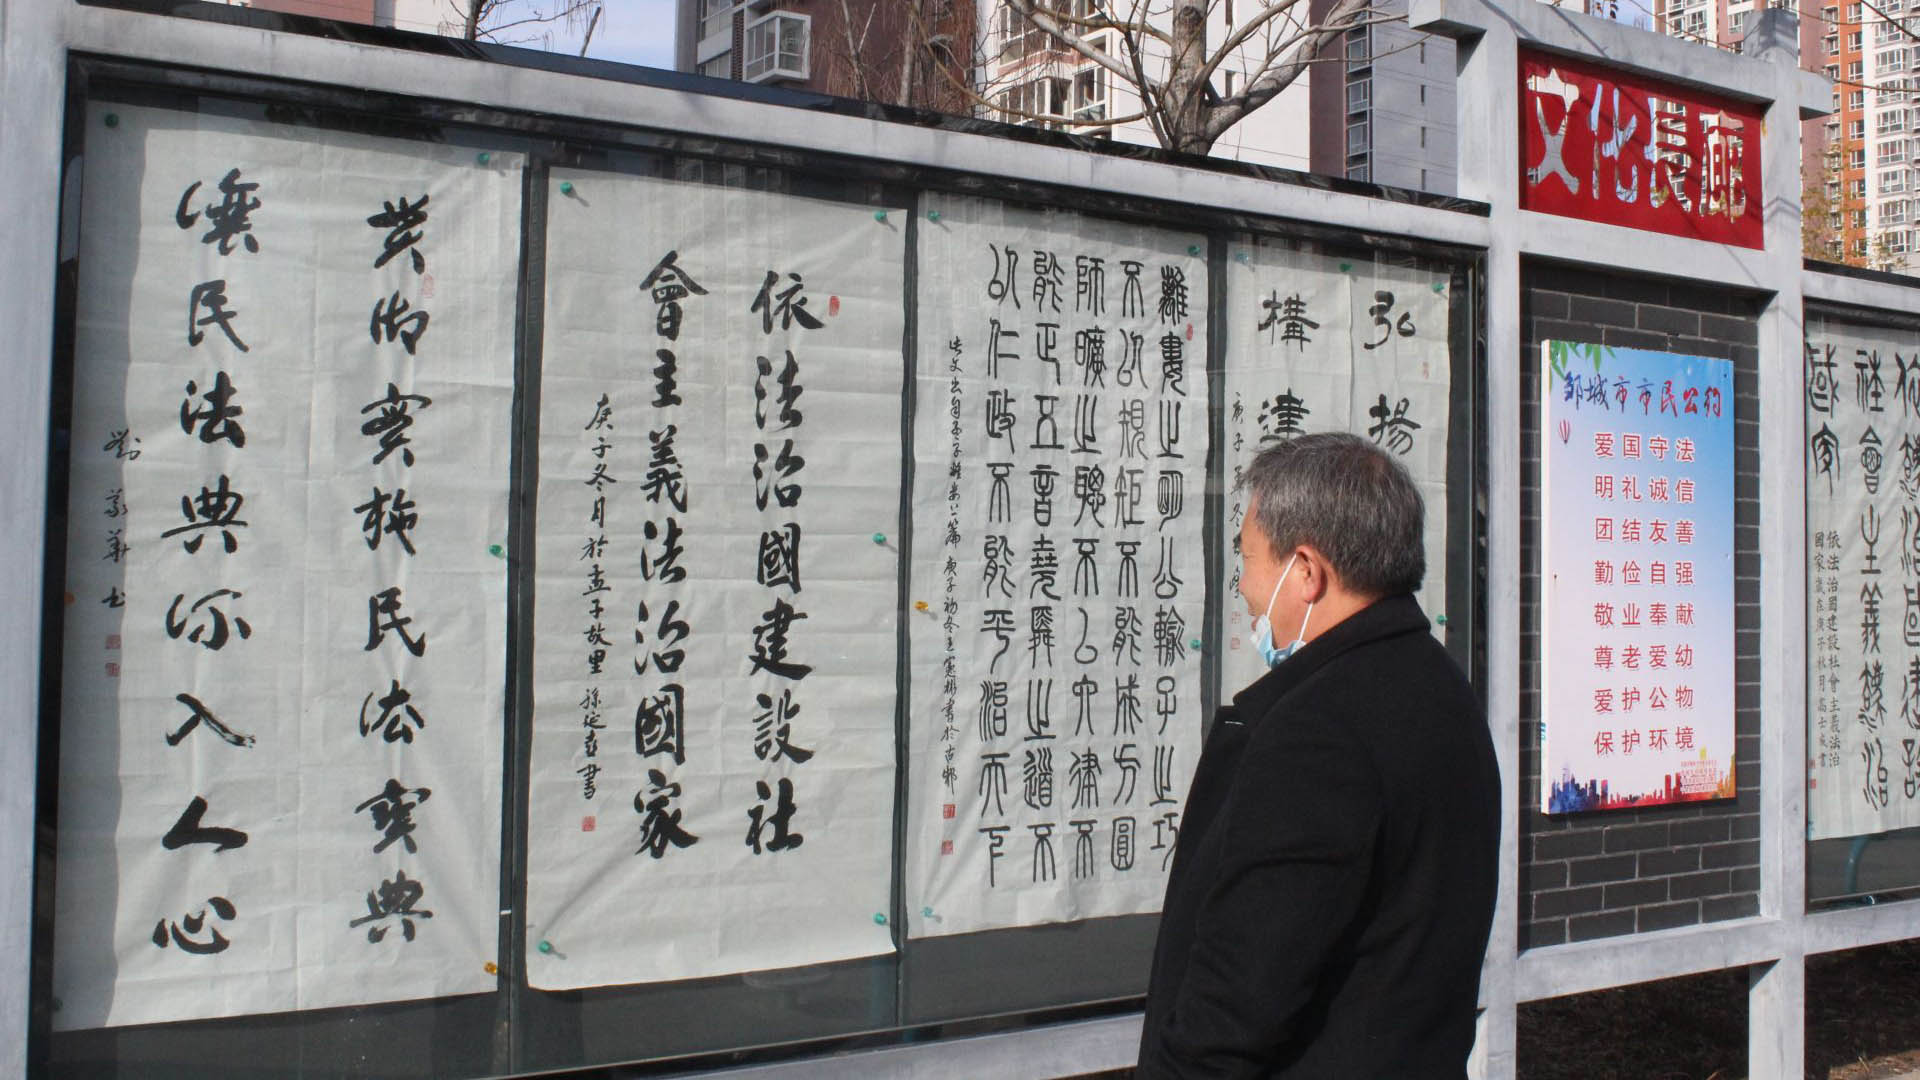 貫徹實施民法寶典
讓民法典深入人心
劉敬華书
依法治國建設社
會主義法治國家
庚子冬月於孟子故里孫延喜書
離婁之明公輸子之巧
不以規矩不能成方圓
師曠之聰不以六律不
能正五音堯舜之道不
以仁政不能平治天下
此文出自孟子離婁上篇 庚子初冬王憲彬書於古邾
弘揚
構建
庚子孟冬
文化長廊
邹城市市民公约
爱国守法
明礼诚信
团结友善
勤俭自强
敬业奉献
尊老爱幼
爱护公物
保护环境
依灋治國建設
社會主義灋治
國家
依法治國建設社會主義法治
國家歲在庚子秋月高士成書